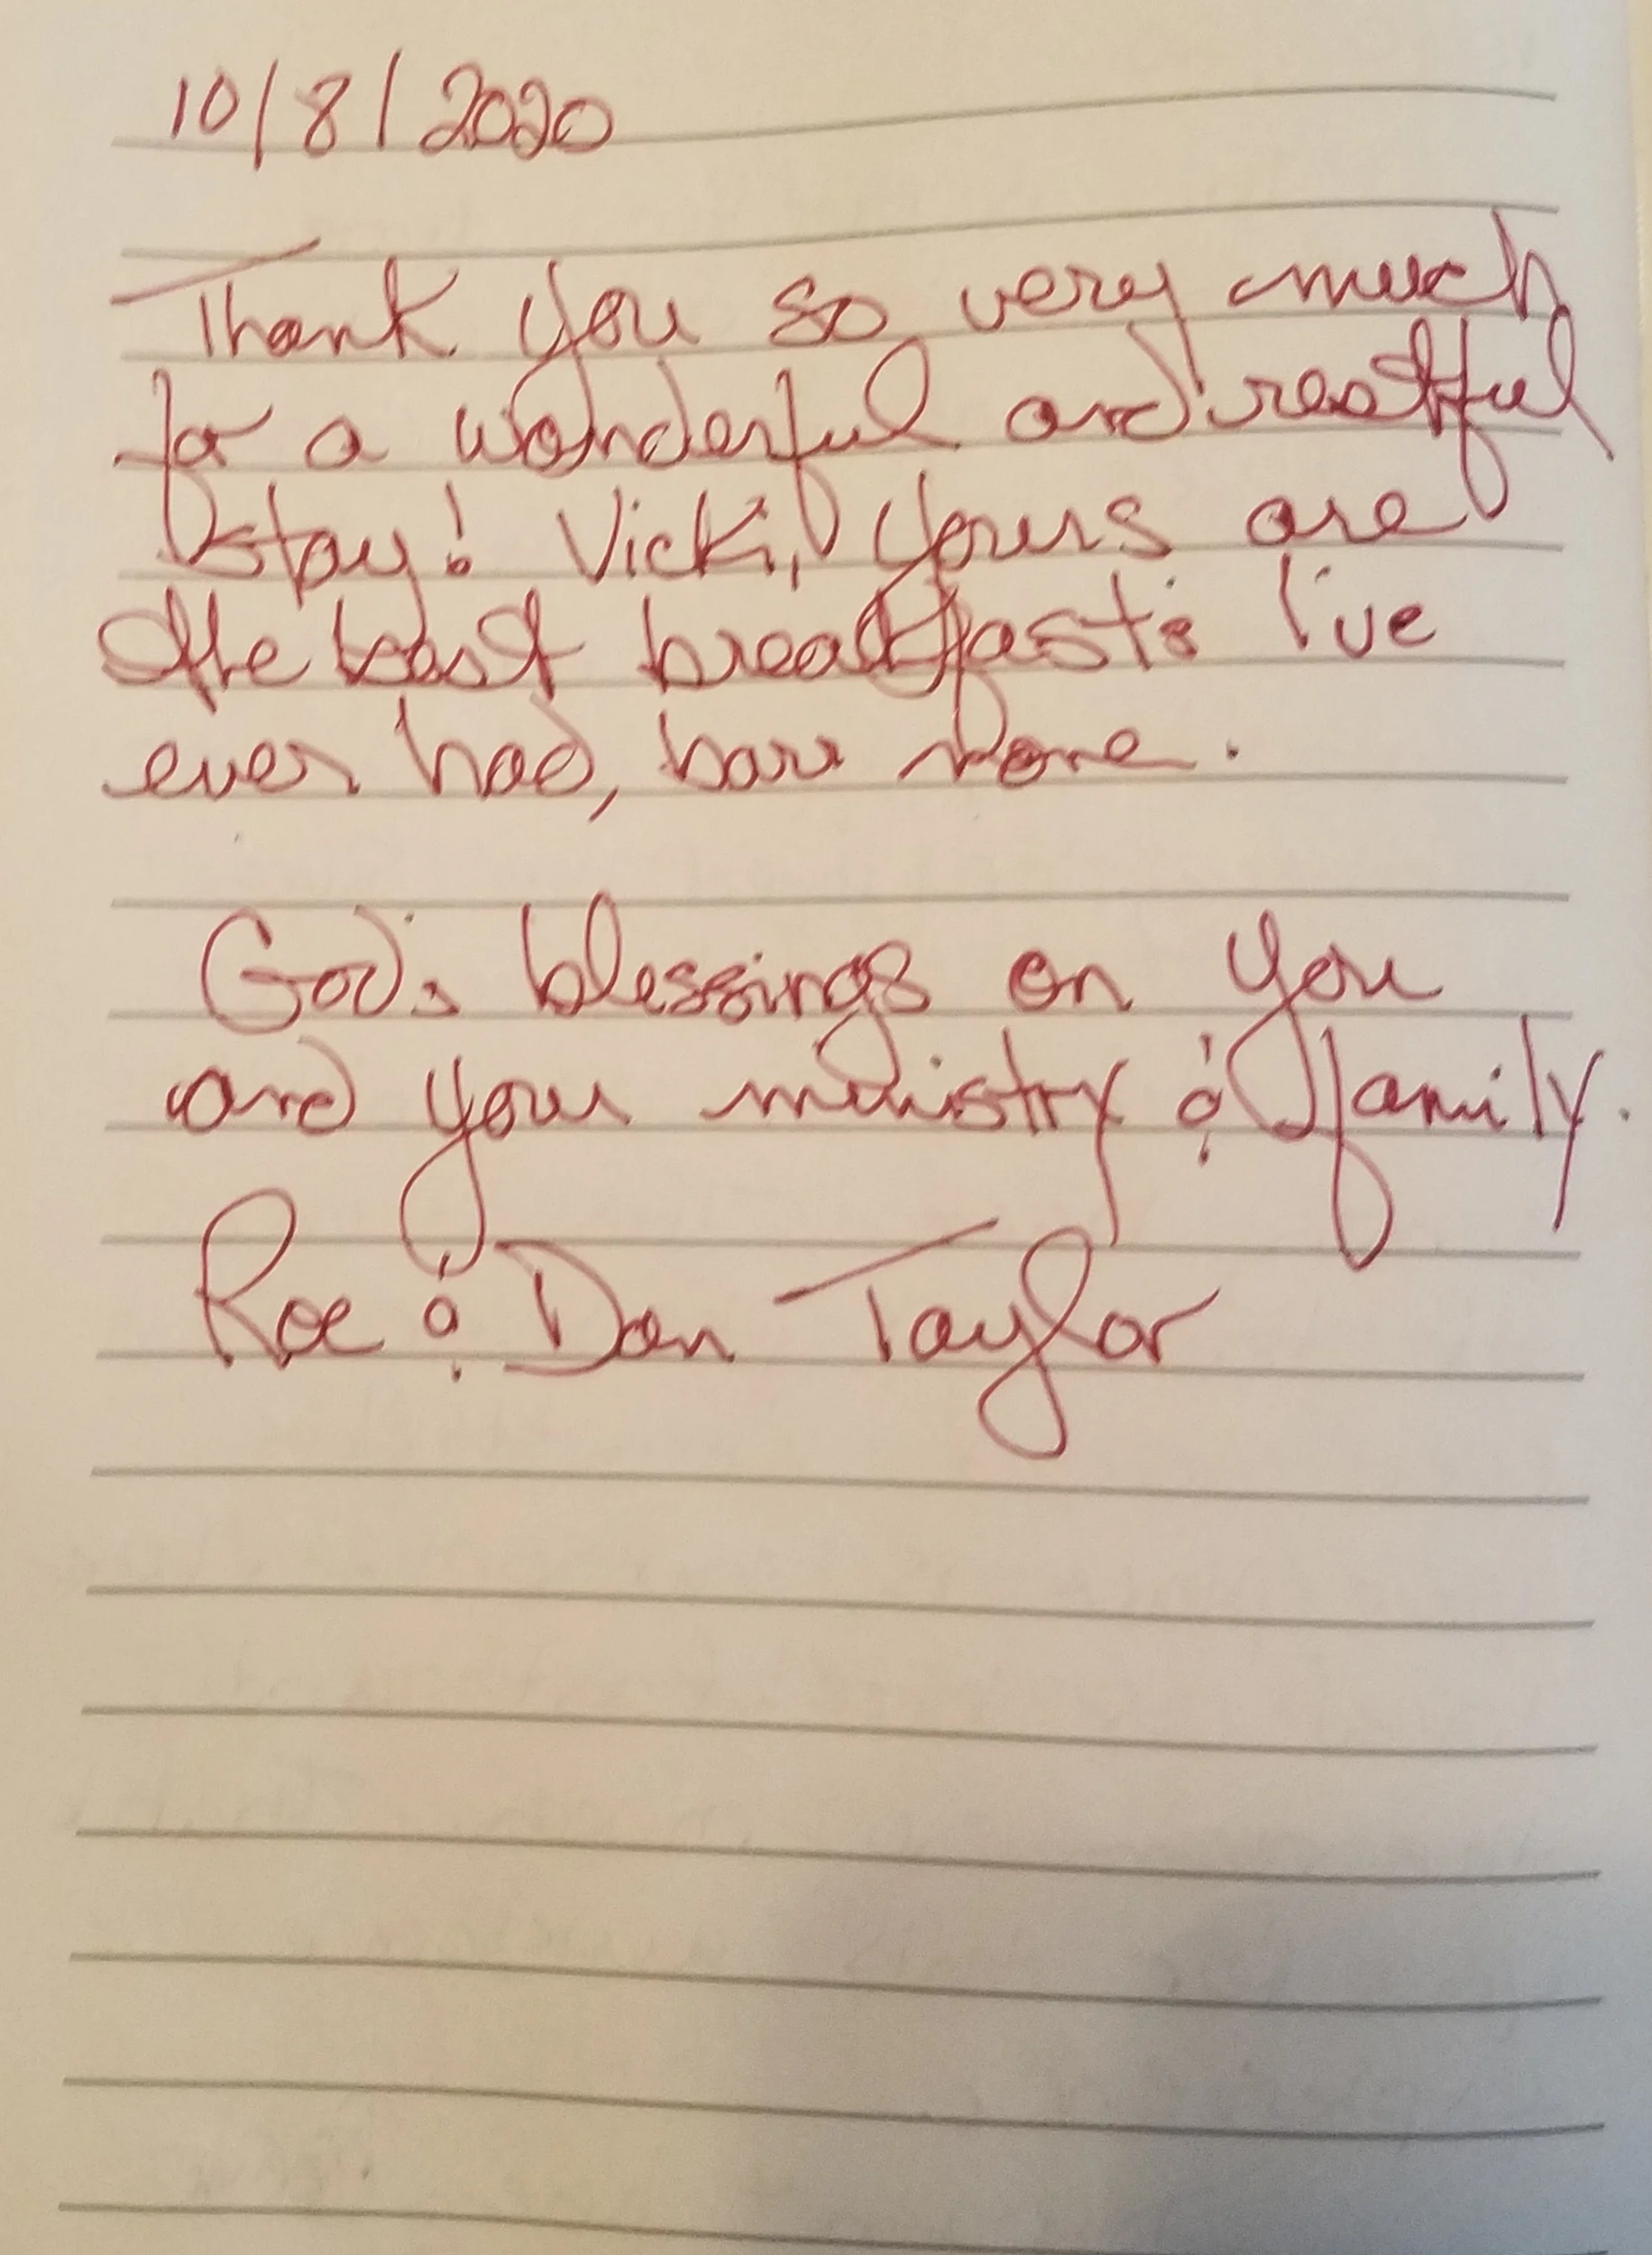 10/8/2020
Thank you so very much
for a wonderful and restful
stay! Vicki, yours are
the best breakfasts I've
ever had, bar none.
God's blessings on you
and your ministry & family.
Roe & Dan Taylor